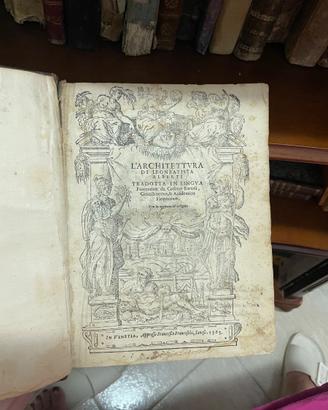 L'ARCHITETTVRA
DI LEONBATISTA
ALBERTI
TRADOTTA IN LINGVA
Fiorentina da Cosimo Bartoli,
Gentilhuomo, & Academico
Fiorentino.
IN VENETIA, Appresso Francesco Franceschi, Sanese. 1565.